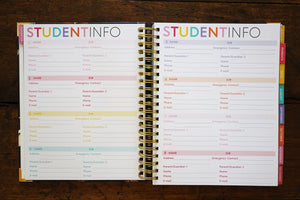 STUDENTINFO
NAME DOB
Address Emergency Contact
Parent/Guardian 1 Parent/Guardian 2
Name Name
Phone Phone
E-mail E-mail
NAME DOB
Address Emergency Contact
Parent/Guardian 1 Parent/Guardian 2
Name Name
Phone Phone
E-mail E-mail
NAME DOB
Address Emergency Contact
Parent/Guardian 1 Parent/Guardian 2
Name Name
Phone Phone
E-mail E-mail
NAME DOB
Address Emergency Contact
Parent/Guardian 1 Parent/Guardian 2
Name Name
Phone Phone
E-mail E-mail
STUDENTINFO
NAME DOB
Address Emergency Contact
Parent/Guardian 1 Parent/Guardian 2
Name Name
Phone Phone
E-mail E-mail
NAME DOB
Address Emergency Contact
Parent/Guardian 1 Parent/Guardian 2
Name Name
Phone Phone
E-mail E-mail
NAME DOB
Address Emergency Contact
Parent/Guardian 1 Parent/Guardian 2
Name Name
Phone Phone
E-mail E-mail
NAME DOB
Address Emergency Contact
Parent/Guardian 1 Parent/Guardian 2
Name Name
Phone Phone
E-mail E-mail